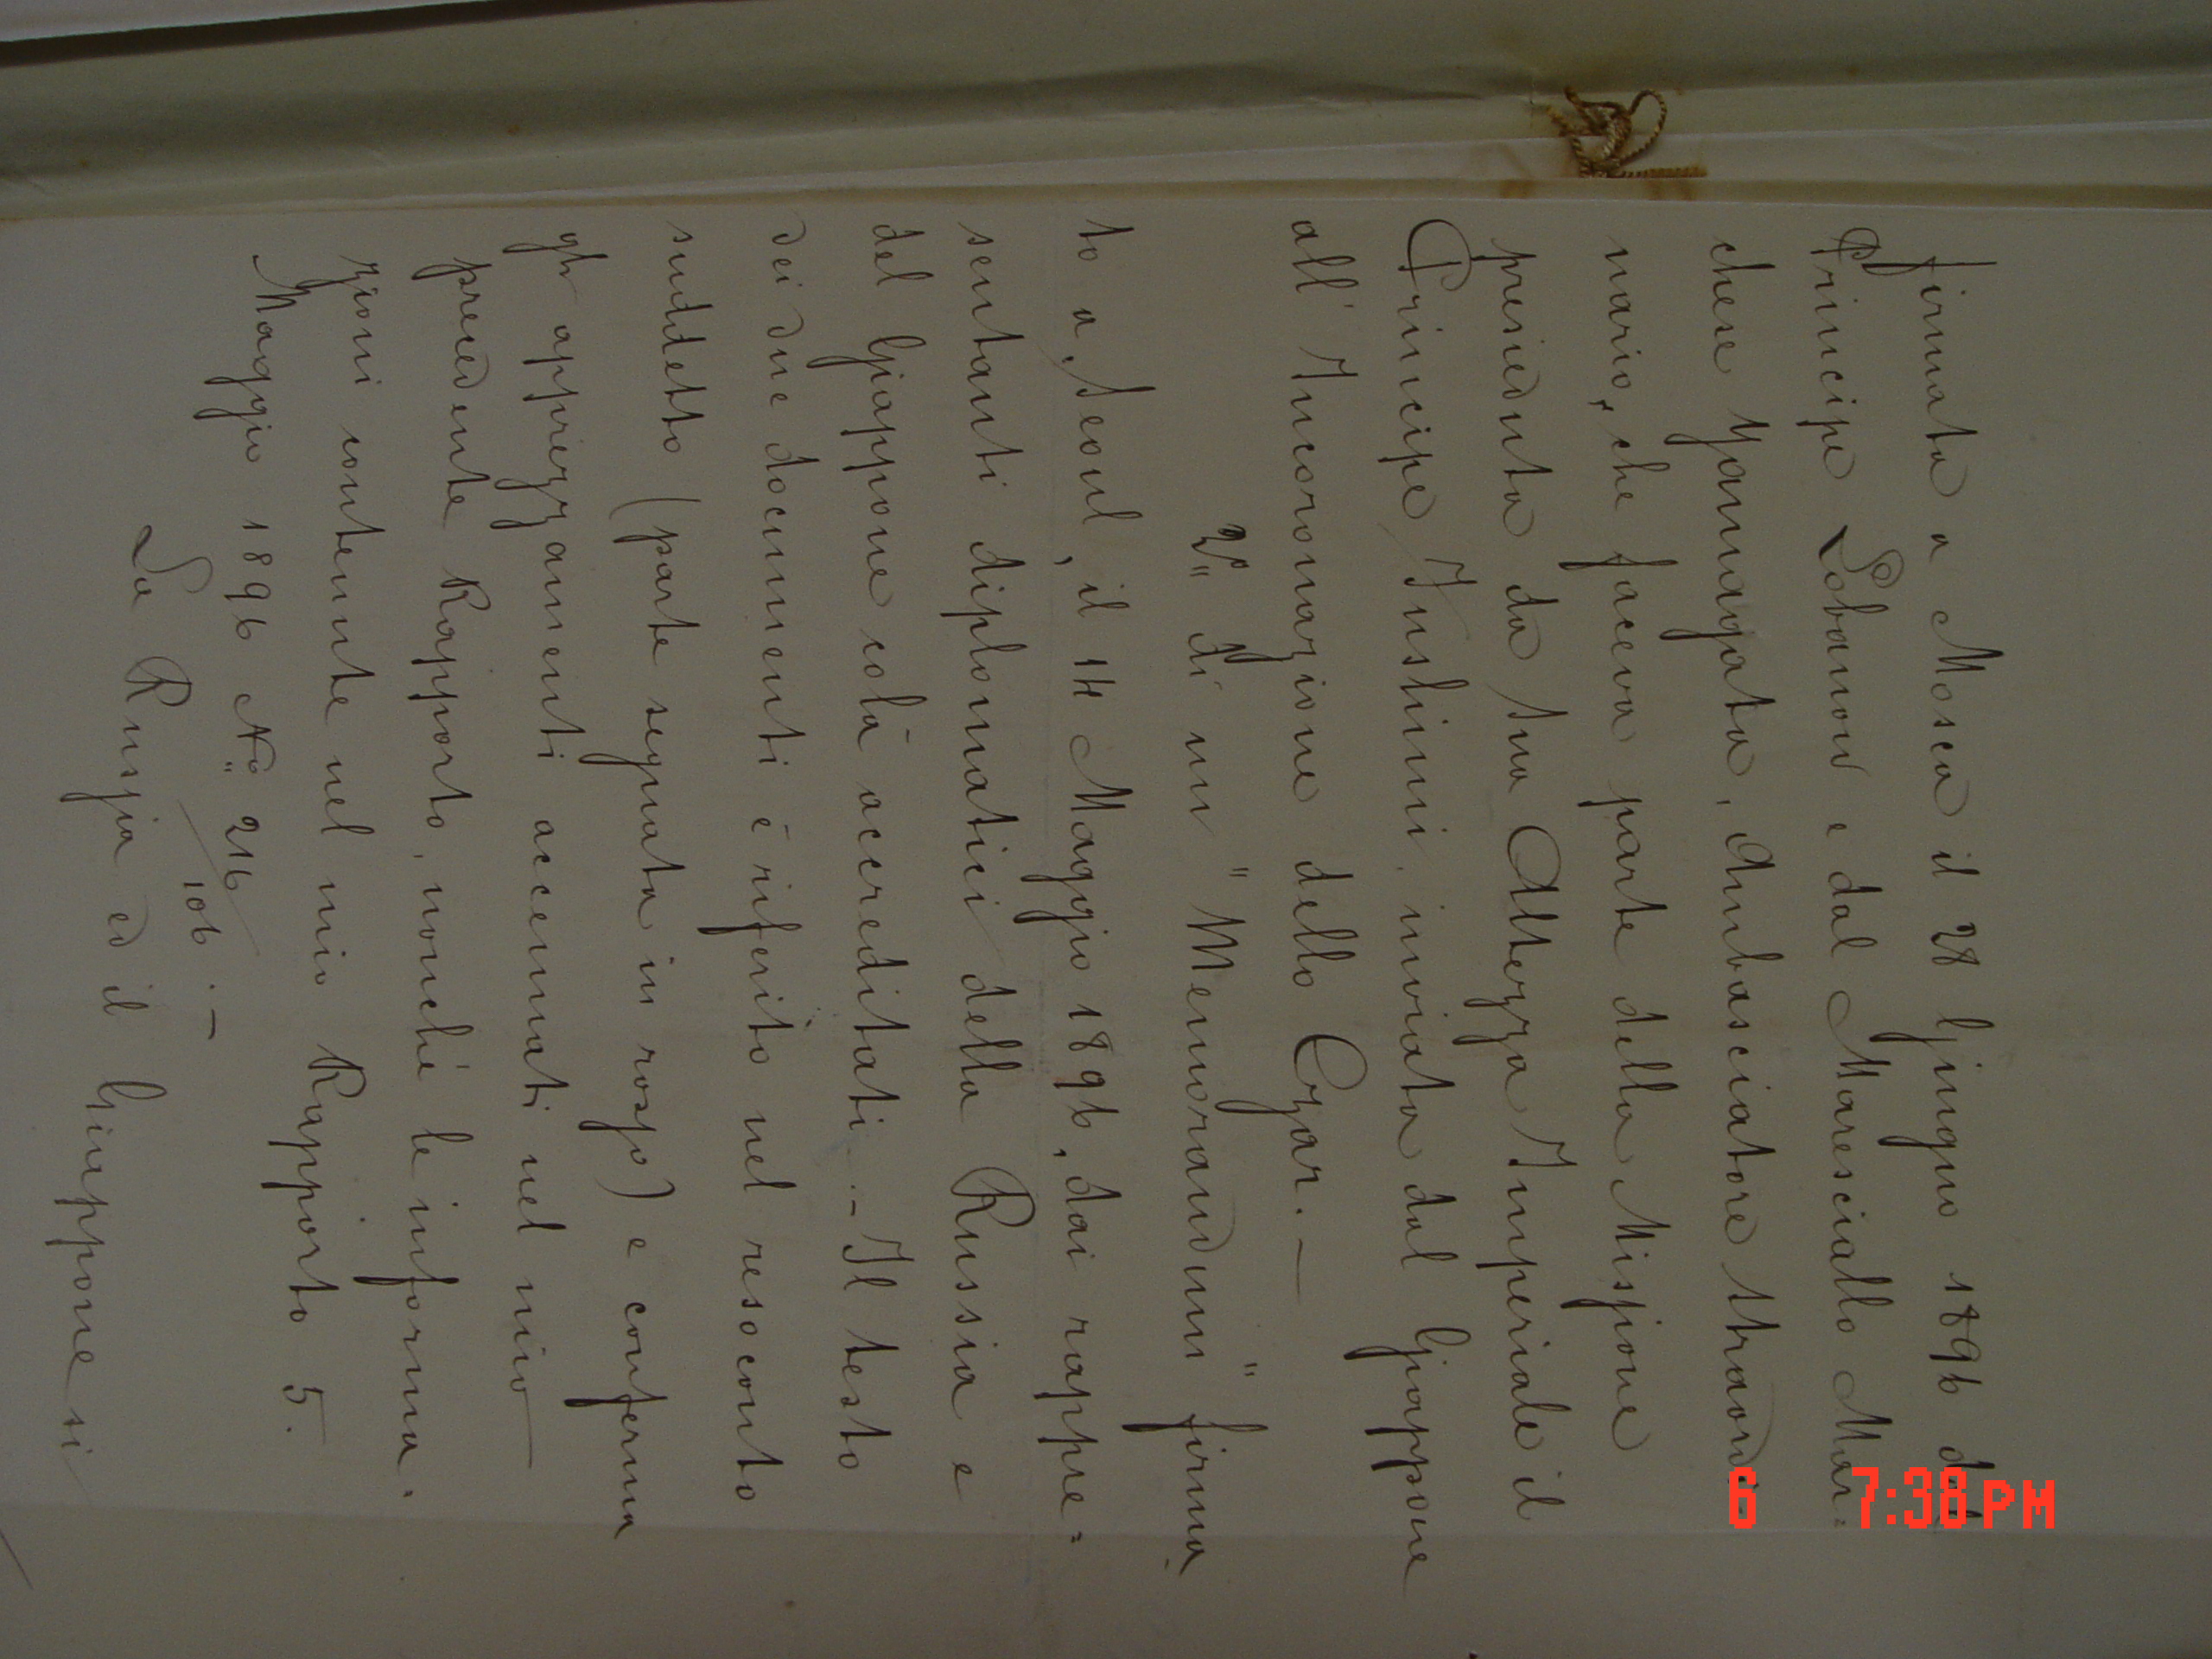 firmata a Mosca il 28 Giugno 1896 dal
Principe Lobanow e dal Maresciallo Mar=
chese Yamagata, Ambasciatore Straordi-
nario, che faceva parte della Missione
presieduta da Sua Altezza Imperiale il
Principe Fushimi, inviata dal Giappone
all'Incoronazione dello Czar.—
2º di un "Memorandum" firma
to a Seoul, il 14 Maggio 1896, dai rappre=
sentanti diplomatici della Russia e
del Giappone colà accreditati.— Il testo
dei due documenti è riferito nel resoconto
suddetto (parte segnata in rosso) e conferma
gli apprezzamenti accennati nel mio
precedente Rapporto, nonché le informa-
zioni contenute nel mio Rapporto 5.
Maggio 1896 Nº 216/106.—
La Russia ed il Giappone si
6 7:38 PM